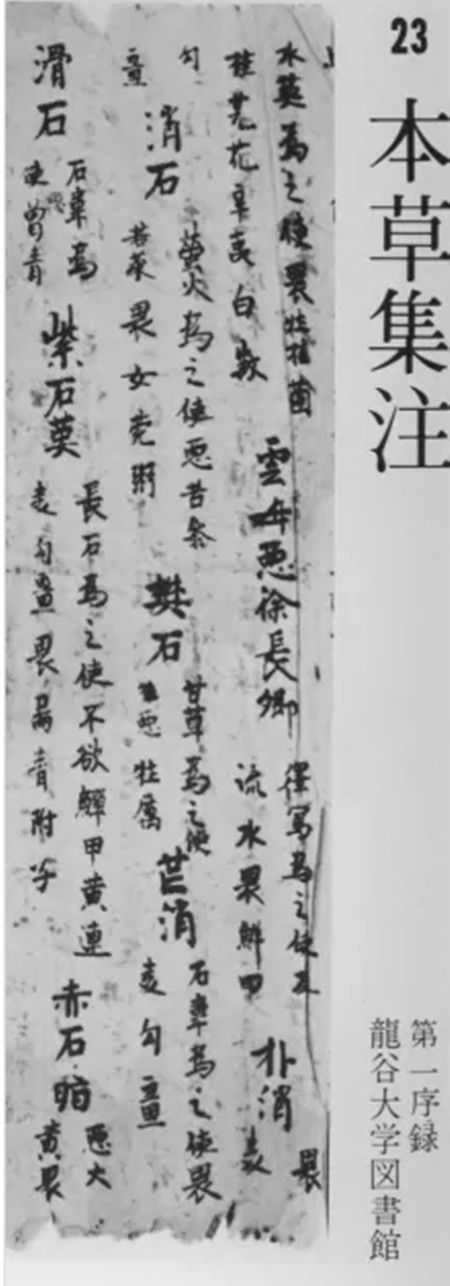 23
本草集注
第一序録
龍谷大学図書館
水英為之使畏牡桂菌
桂芫花辛夷白斂
雲母惡徐長卿
澤寫為之使反
流水畏鮮甲
朴消
畏
麦
句
薑
消石
螢火為之使惡苦参
苦菜畏女菀粥
礬石
甘草為之使
惡牡厲
芒消
石韋為之使畏
麦句薑
滑石
石韋為
使曽青
紫石英
長石為之使不欲鱓甲黄連
麦句薑畏扁青附子
赤石脂
惡大
黄畏